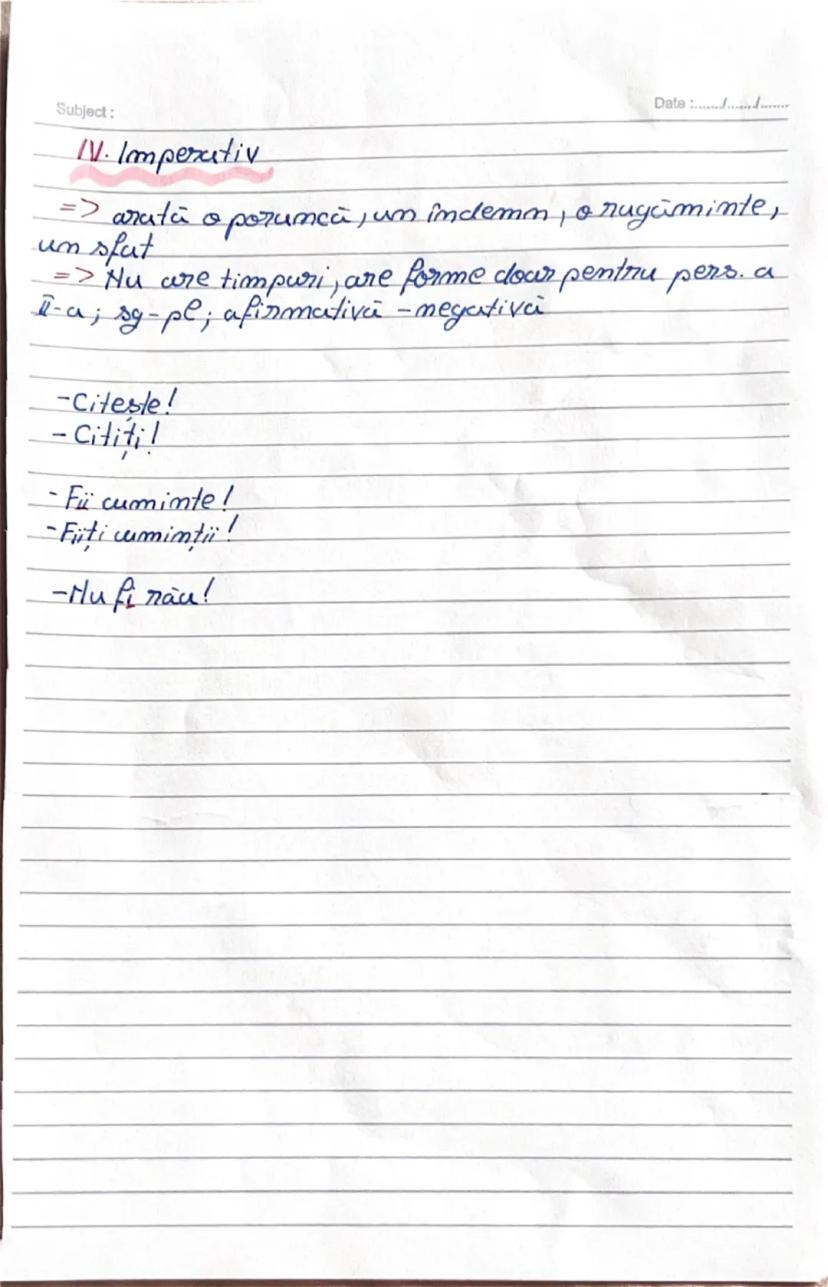 Subject :
Date :....../....../.......
IV. Imperativ
=> arată o poruncă, un îndemn, o rugăminte,
un sfat
=> Nu are timpuri, are forme doar pentru pers. a
II-a; sg-pl; afirmativă - negativă
- Citește!
- Citiți!
- Fii cuminte!
- Fiiți cuminții!
- Nu fi rău!